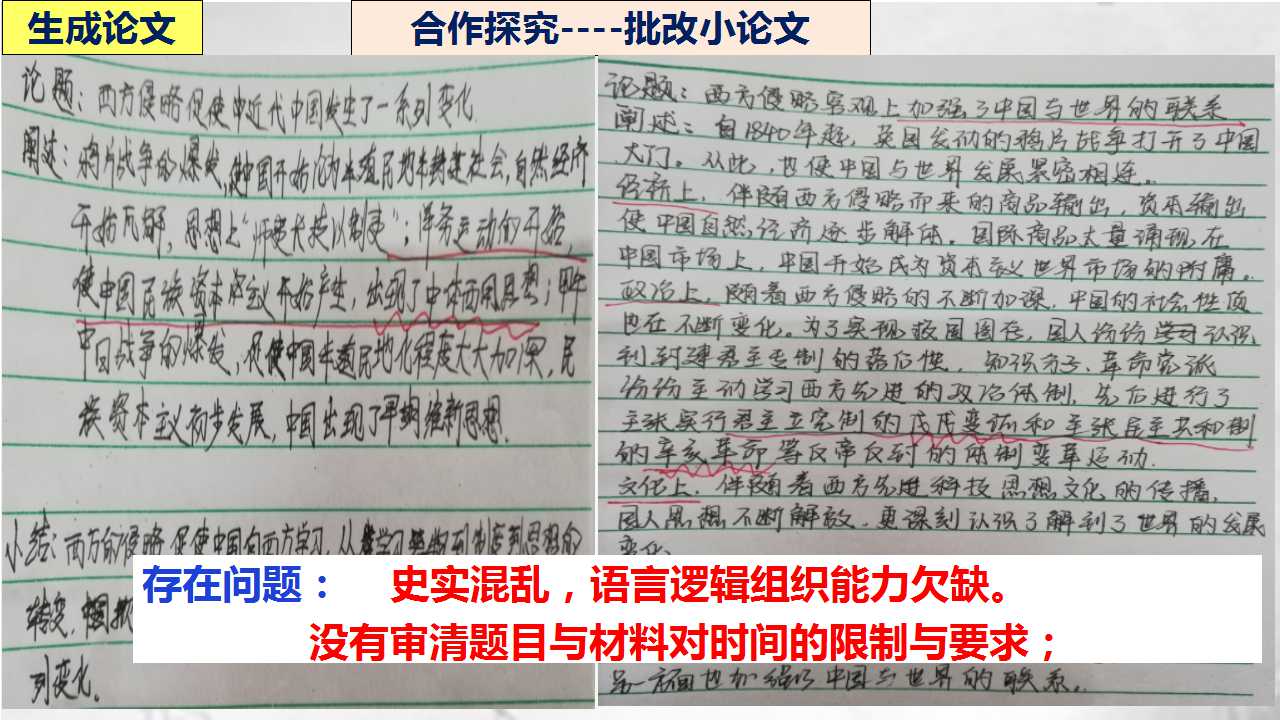 生成论文
合作探究----批改小论文
论题：西方侵略促使中近代中国发生了一系列变化.
阐述：鸦片战争的爆发，使中国开始沦为半殖民地半封建社会，自然经济
开始瓦解，思想上“师夷长技以制夷”；洋务运动的开始，
使中国民族资本主义开始产生，出现了中体西用思想；甲午
中日战争的爆发，促使中国半殖民地化程度大大加深，民
族资本主义初步发展，中国出现了早期维新思想.
小结：西方的侵略促使中国向西方学习，从学习器物到制度到思想的
转变，中国
列变化。
论题：西方侵略客观上加强了中国与世界的联系
阐述：自1840年起，英国发动的鸦片战争打开了中国
大门。从此，也使中国与世界发展紧密相连。
经济上，伴随西方侵略而来的商品输出，资本输出
使中国自然经济逐步解体。国际商品大量涌现在
中国市场上，中国开始成为资本主义世界市场的附庸。
政治上，随着西方侵略的不断加深，中国的社会性质
也在不断变化。为了实现救国图存，国人纷纷认识
到封建君主专制的落后性，知识分子、革命党派
纷纷主动学习西方先进的政治体制，先后进行了
主张实行君主立宪制的戊戌变法和主张民主共和制
的辛亥革命等反帝反封的体制变革运动.
文化上，伴随着西方先进科技思想文化的传播，
国人思想不断解放，更深刻认识了解到了世界的发展
变化
存在问题： 史实混乱，语言逻辑组织能力欠缺。
没有审清题目与材料对时间的限制与要求；
另一方面也加强了中国与世界的联系。